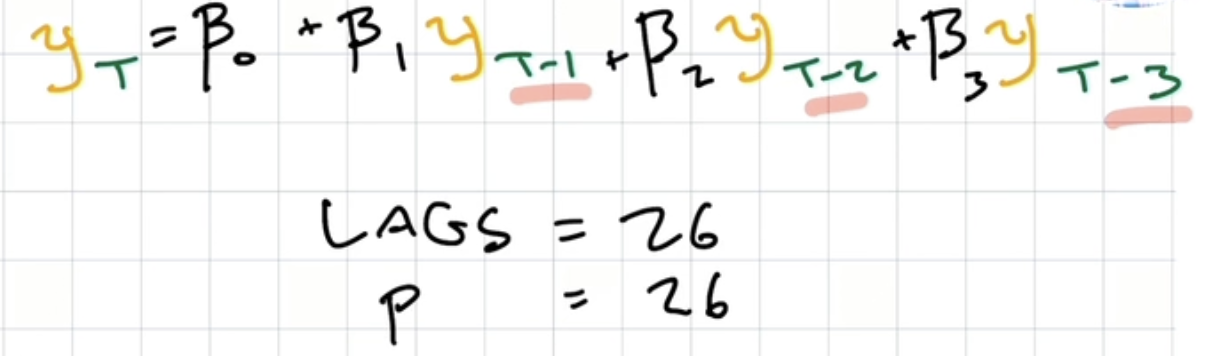 y_T = β_0 + β_1 y_T-1 + β_2 y_T-2 + β_3 y_T-3
LAGS = 26
p = 26